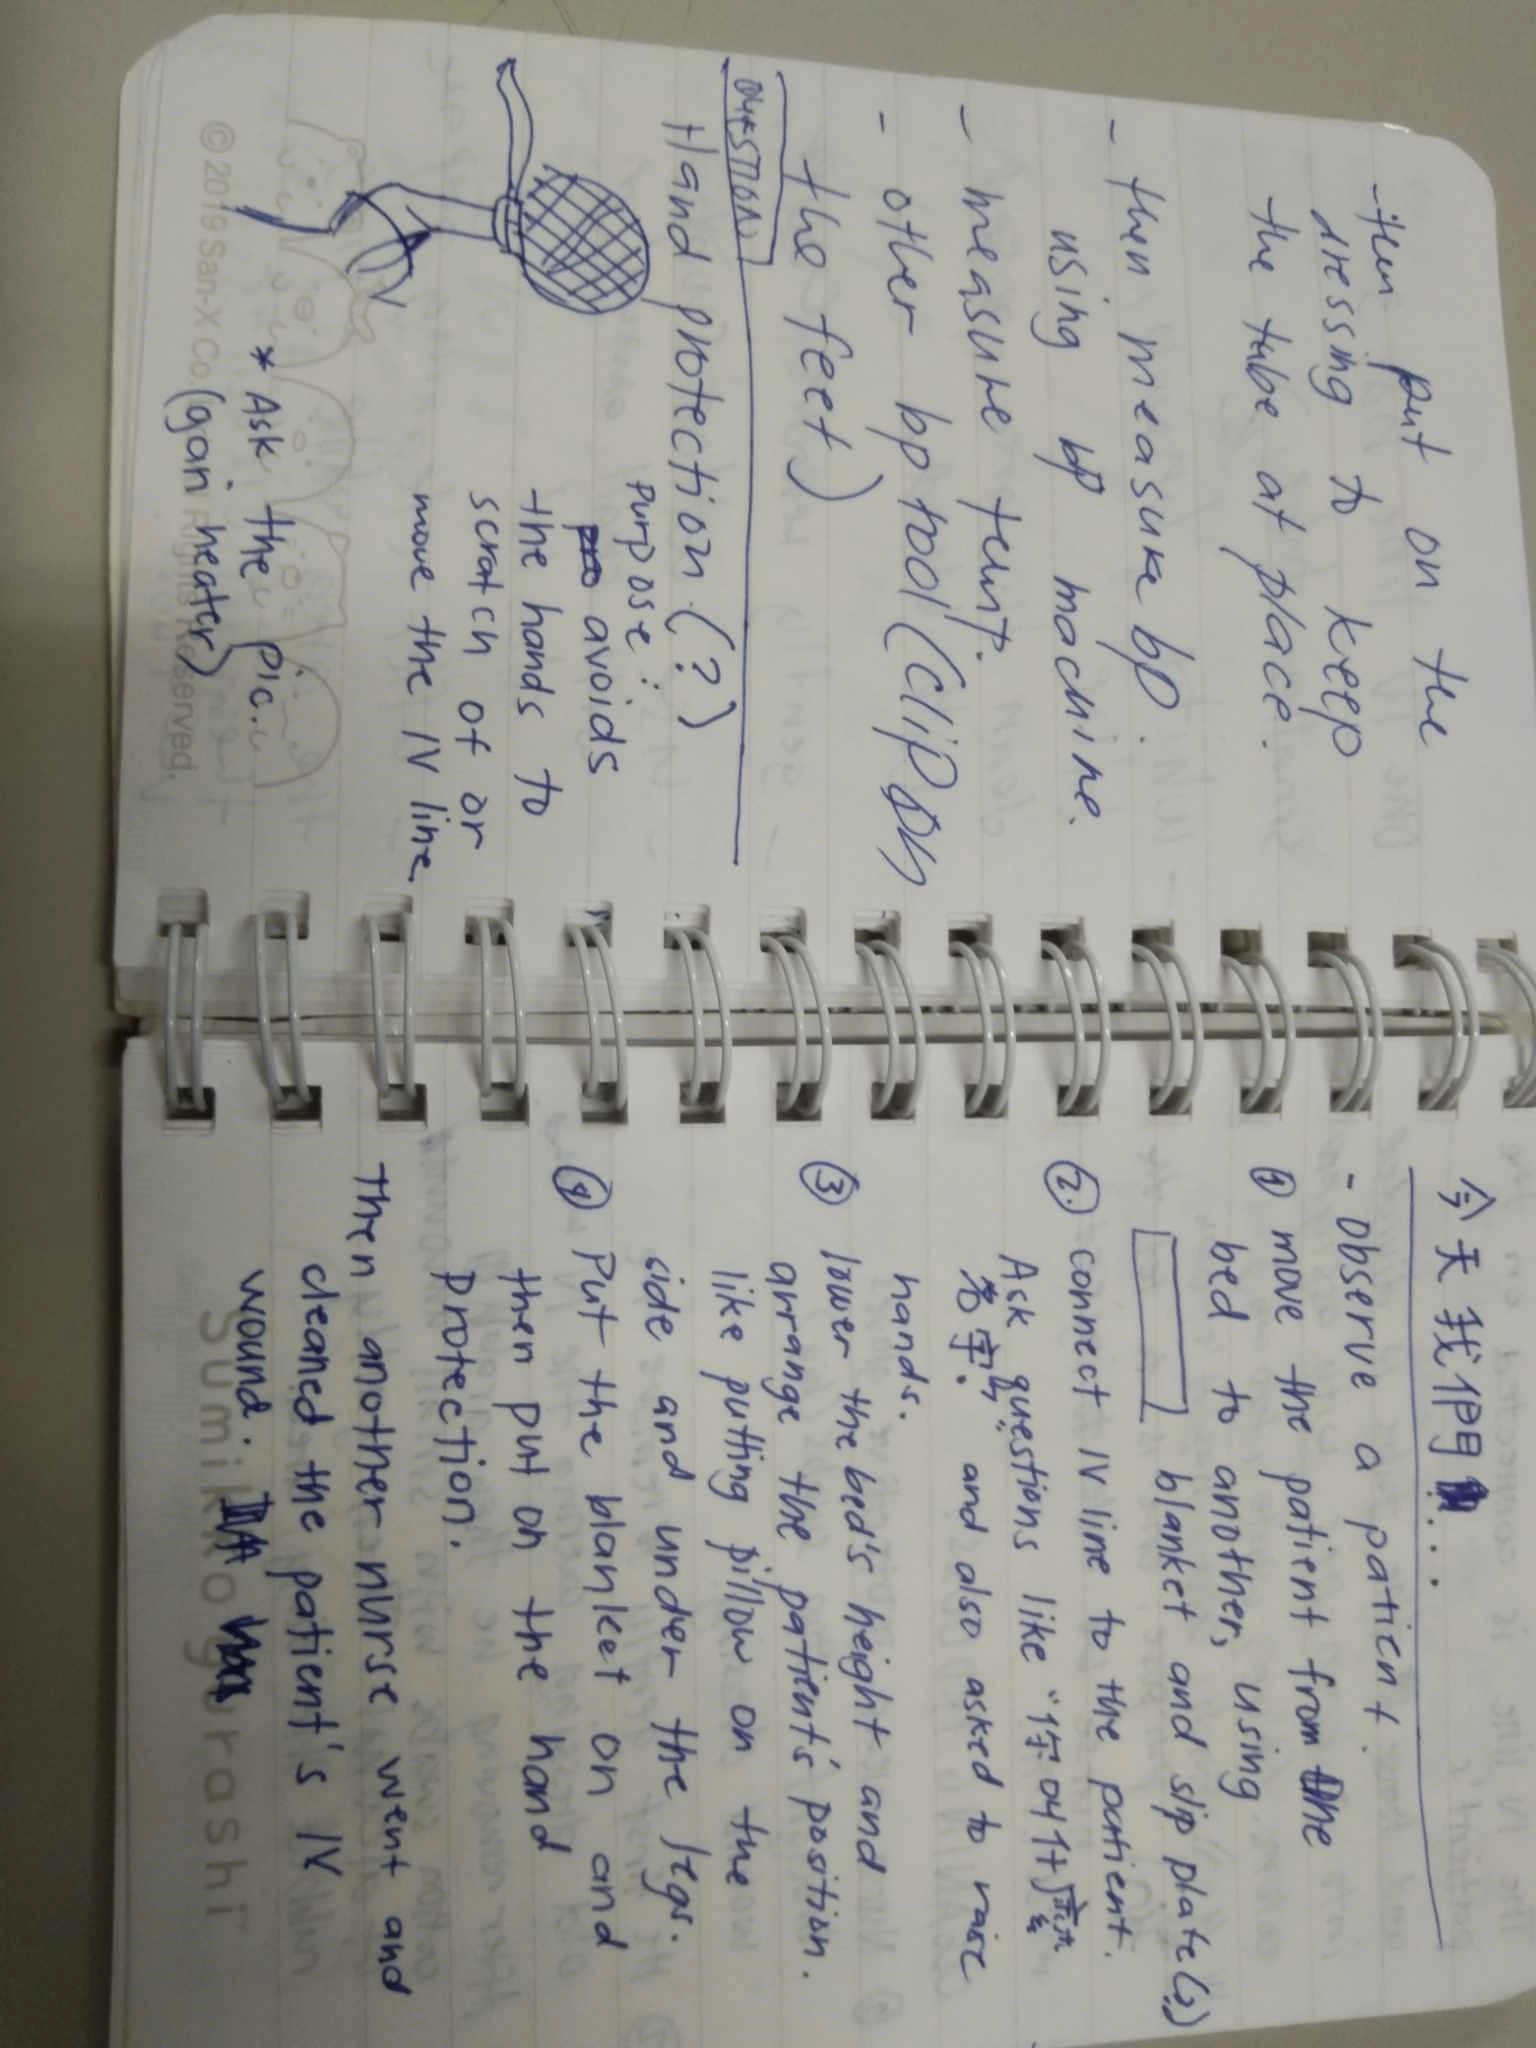 -then put on the
dressing to keep
the tube at place.
- then measure bp.
using bp machine.
- measure temp.
- other bp tool (clip on
the feet)
QUESTION
Hand protection (?)
purpose:
avoids
the hands to
scratch of or
move the IV line
* Ask the pic.
(gan heater)
© 2019 San-X Co., Rights Reserved.
今天我们 ...
- observe a patient.
① move the patient from the
bed to another, using
blanket and slip plate(?)
② connect IV line to the patient.
Ask questions like "你叫什么
名字?" and also asked to raise
hands.
③ lower the bed's height and
arrange the patient's position.
like putting pillow on the
side and under the legs.
④ Put the blanket on and
then put on the hand
protection.
Then another nurse went and
cleaned the patient's IV
wound.
Sumikkogurashi